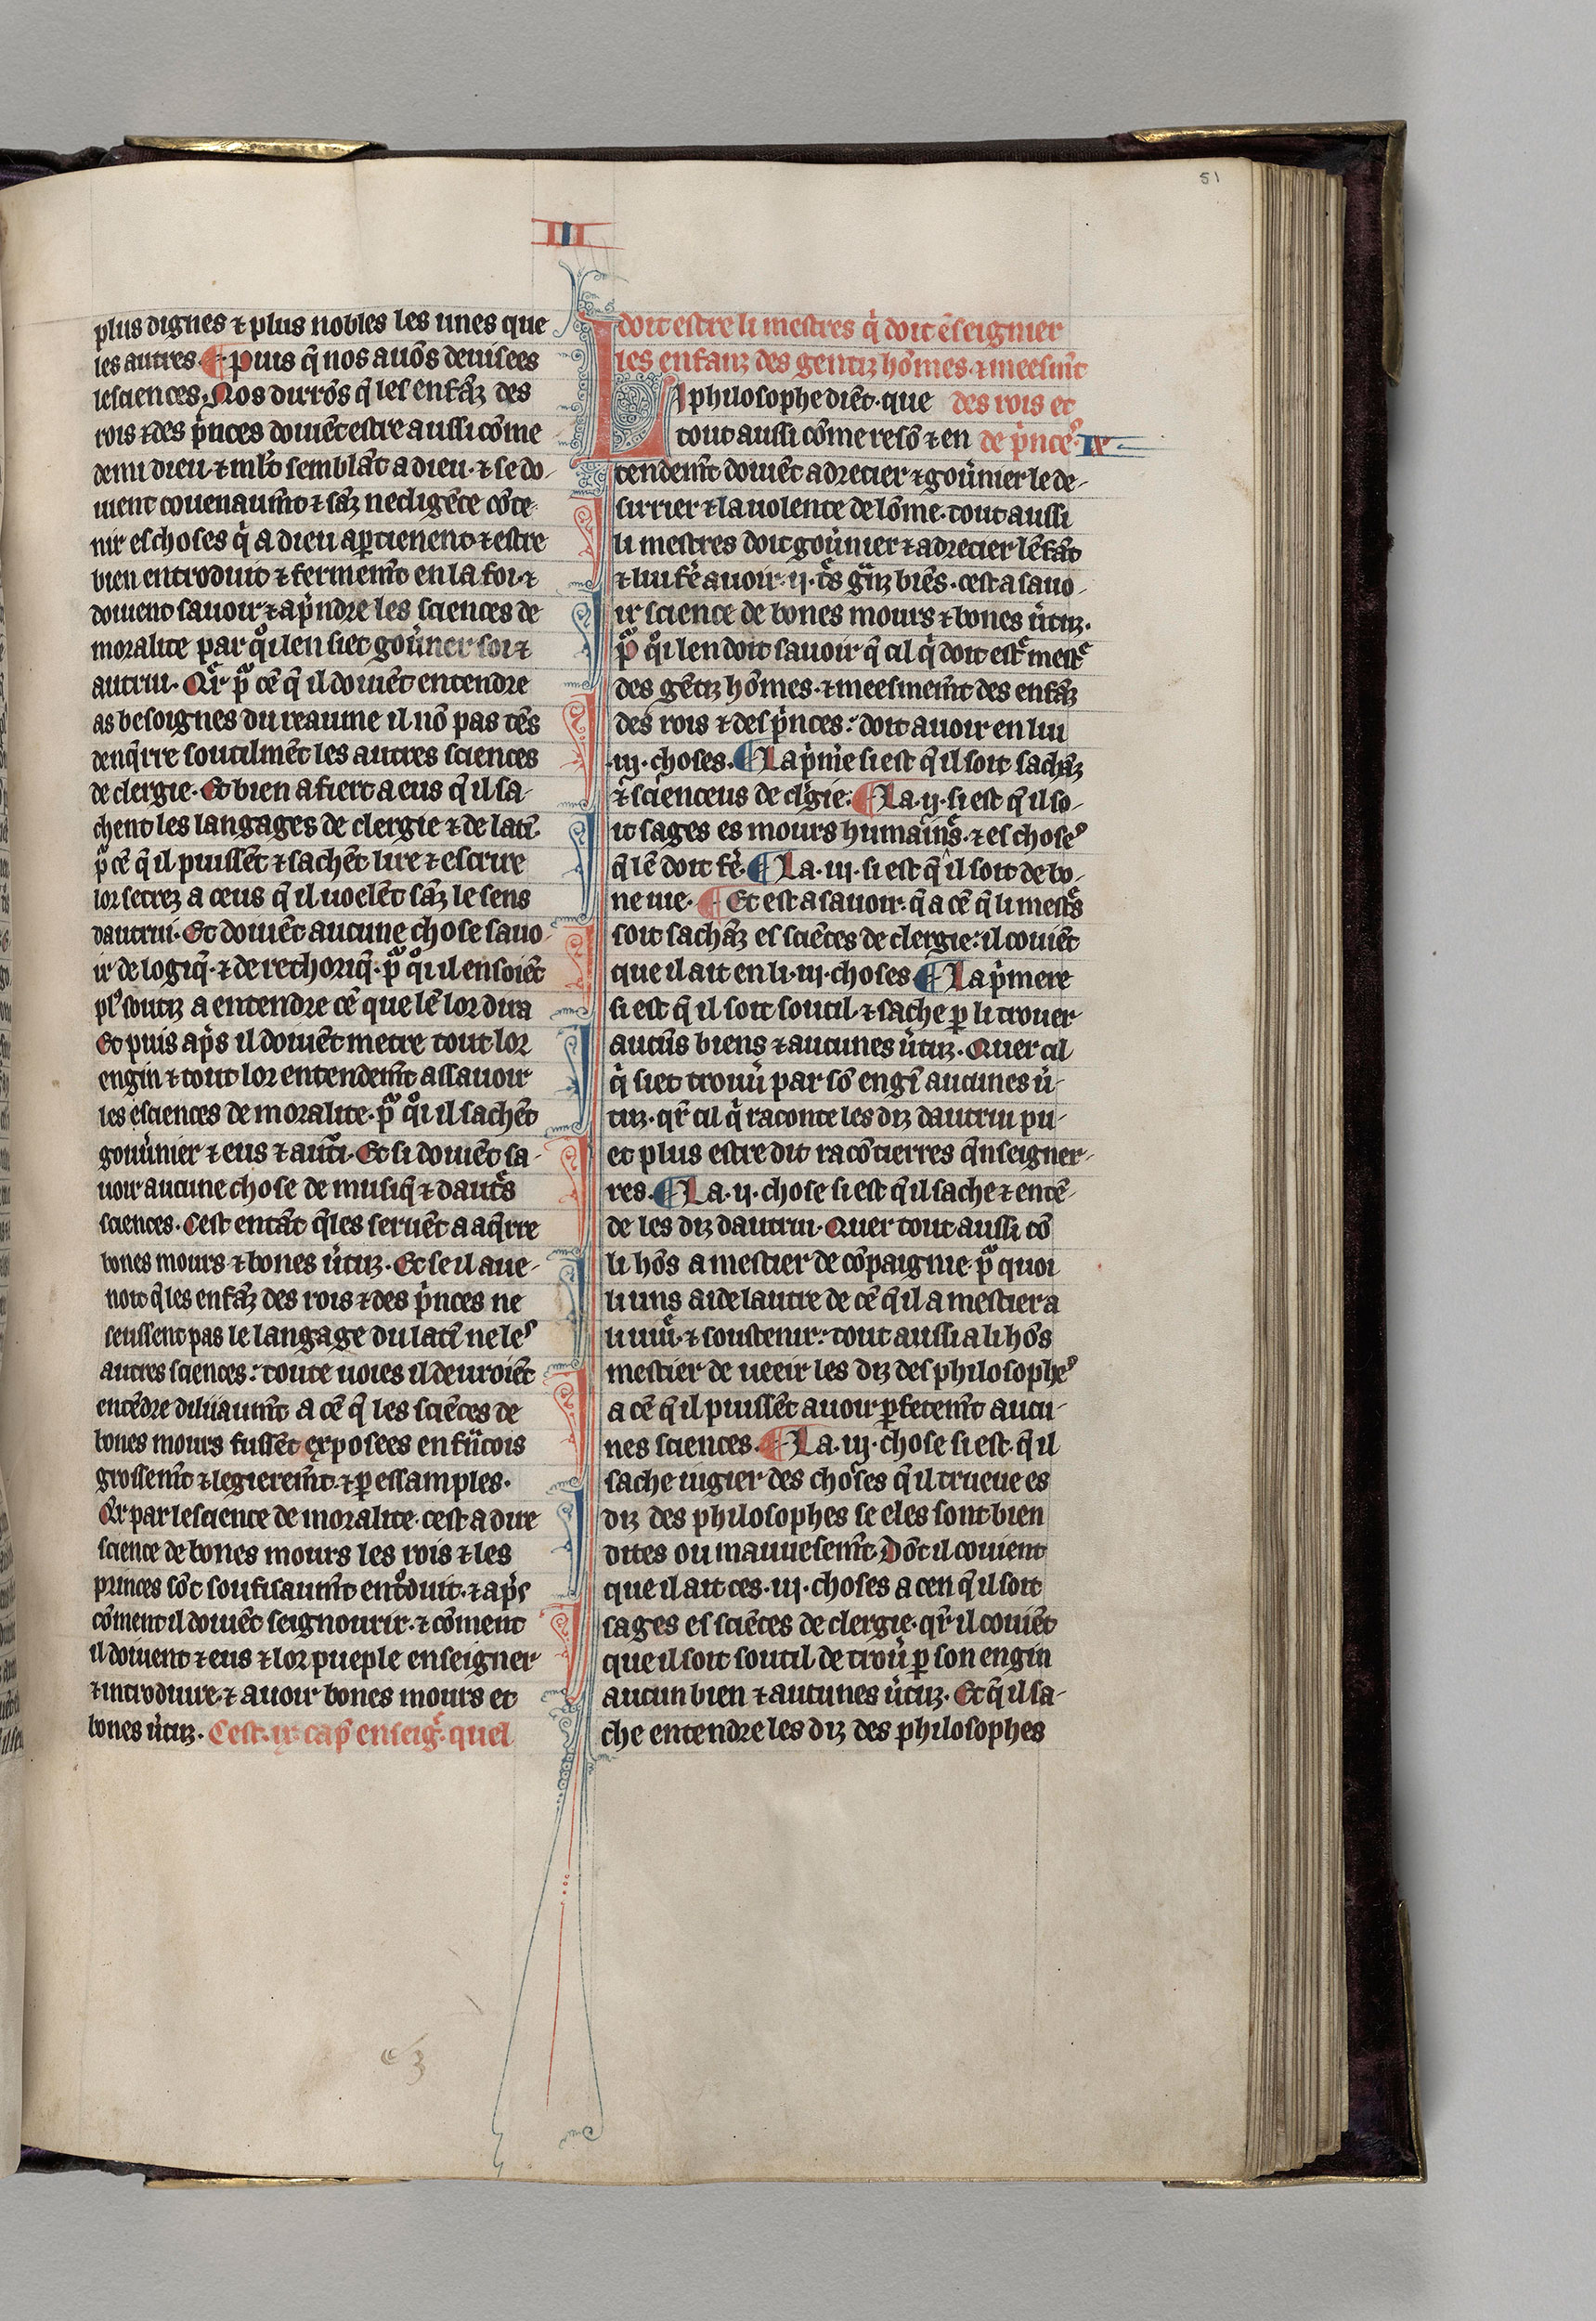 51
III
plus dignes ⁊ plus nobles les unes que
les autres. ¶ puis q̄ nos auōs deuisees
lesciences. Nos dirrōs q̄ les enfāz des
rois ⁊ des p̍nces doiuēt estre aussi cōme
demi dieu. ⁊ ml̄t semblāt a dieu. ⁊ se do-
iuent couenaum̄t ⁊ sāz negligēce cōte-
nir es choses q̍ a dieu ap̱tienent. ⁊ estre
bien entroduit ⁊ fermem̄t en la foi. ⁊
doiuent sauoir ⁊ ap̍ndre les sciences de
moralite par qͦi len siet gou̍ner soi ⁊
autrui. Qr̄ pͣ cē q̄ il doiuēt entendre
as besoignes du reaume il nō pas tēs
denq̄rre soutilmēt les autres sciences
de clergie. Et bien afiert a eus q̄ il sa-
chent les langages de clergie ⁊ de latī.
pͣ cē q̄ il puissēt ⁊ sachēt lire ⁊ escrire
lor secrez a ceus q̄ il uoelēt sāz le sens
dautrui. Et doiuēt aucune chose sauo-
ir de logiq̄. ⁊ de rethoriq̄. pͣ qͦi il en soiēt
pl᾽ soutiz a entendre cē que lē lor dira
Et puis ap̍s il doiuēt metre tout lor
engin ⁊ tout lor entendem̄t assauoir
les esciences de moralite. pͣ qͦi il sachēt
gouu̍nier ⁊ eus ⁊ aut̍i. Et si doiuēt sa-
uoir aucune chose de musiq̄ ⁊ daut̍s
sciences. Cest entāt q̄les seruēt a aq̄rre
bones mours ⁊ bones u̍tuz. Et se il aue-
noit q̄ les enfāz des rois ⁊ des p̍nces ne
seussent pas le langage du latī ne le᾽
autres sciences: toute uoies il deuroiēt
entēdre diliiaum̄t a cē q̄ les sciēces de
bones mours fussēt exposees en frācois
grossem̄t ⁊ legierem̄t. ⁊ p̱ essamples.
Qr̄ par lescience de moralite. cest a dire
science de bones mours les rois ⁊ les
princes sōt soufisaum̄t entͦduit. ⁊ ap̍s
cōment il doiuēt seignourir. ⁊ cōment
il doiuent ⁊ eus ⁊ lor pueple enseigner
⁊ introduire. ⁊ auoir bones mours et
bones u̍tuz. Cest. ix cap̄ enseig̍. quel
doit estre li mestres q̍ doit ēseignier
les enfanz des gentiz hōmes. ⁊ meesm̄t
LI philosophe diēt. que des rois et
tout aussi cōme resō ⁊ en de p̍nce᾽. IX
tendem̄t doiuēt adrecier ⁊ gou̍nier le de-
sirrier ⁊ la uolente de lōme. tout aussi
li mestres doit gou̍nier ⁊ adrecier lēfāt
⁊ li fe̍ auoir. ij. t̍s gͣnz biēs. cest a sauo-
ir science de bones mours ⁊ bones u̍tuz.
pͣ qͦi len doit sauoir q̄ cil q̍ doit est̍ mest̍
des gētiz hōmes. ⁊ meesmem̄t des enfāz
des rois ⁊ des p̍nces: doit auoir en lui
.iij. choses. ¶ La p̍mie̍ si est q̄ il soit sachāz
⁊ scienceus de cl̍gie. ¶ La. ij. si est q̄ il so-
it sages es mours humains. ⁊ es chose᾽
q̄ lē doit fe̍. ¶ La. iij. si est q̄ il soit de bo-
ne uie. ¶ Et est a sauoir. q̄ a cē q̄ li mest̍s
soit sachāz es sciēces de clergie: il couiēt
que il ait en li. iij. choses ¶ La p̍mere
si est q̄ il soit soutil. ⁊ sache p̱ li trouer
aucūs biens ⁊ aucunes u̍tuz. Quer cil
q̍ siet trouu̍ par sō engī aucunes u̍-
tuz. qr̄ cil q̍ raconte les diz dautrui pu-
et plus estre dit racōtierres q̄nseigner-
res. ¶ La. ij. chose si est q̄ il sache ⁊ entē-
de les diz dautrui. Quer tout aussi cō
li hōs a mestier de cōpaignie. pͣ quoi
li uns aide lautre de cē q̄ il a mestier a
li uiu̍. ⁊ soustenir: tout aussi a li hōs
mestier de ueeir les diz des philosophe᾽
a cē q̄ il puissēt auoir p̱fetem̄t aucu-
nes sciences. ¶ La. iij. chose si est. q̄ il
sache iugier des choses q̄ il trueue es
diz des philosophes se eles sont bien
dites ou mauuesem̄t. Dōt il couient
que il ait ces. iij. choses a cen q̄ il soit
sages es sciēces de clergie. qr̄ il couiēt
que il soit soutil de trou̍ p̱ son engin
aucun bien ⁊ aucunes u̍tuz. Et q̄ il sa-
che entendre les diz des philosophes